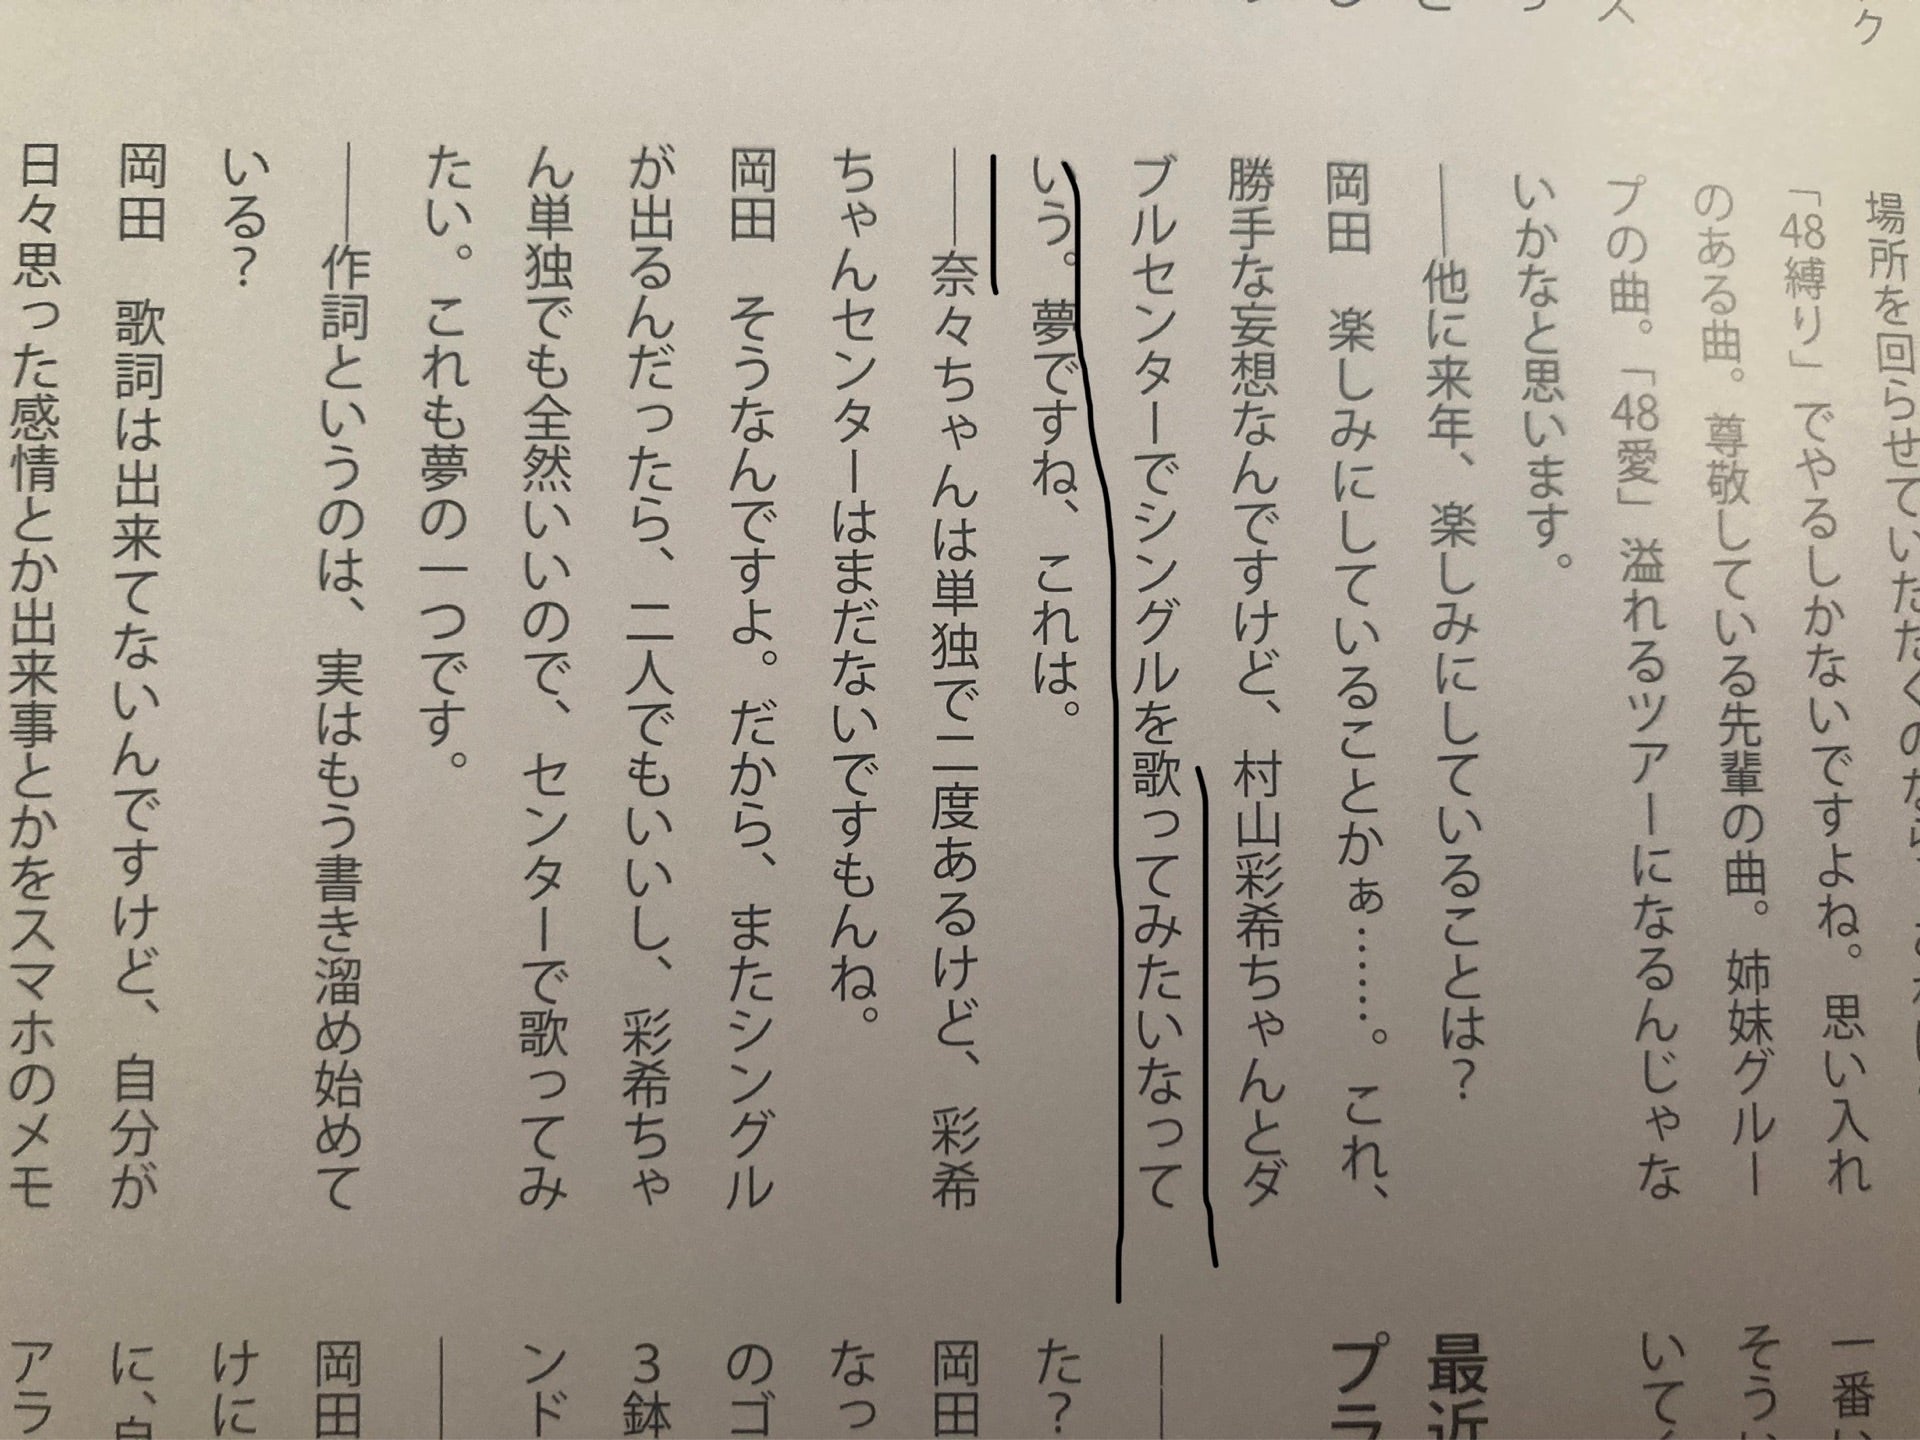 場所を回らせていただくのなら、
「48縛り」でやるしかないですよね。思い入れ
のある曲。尊敬している先輩の曲。姉妹グルー
プの曲。「48愛」溢れるツアーになるんじゃな
いかなと思います。
――他に来年、楽しみにしていることは？
岡田　楽しみにしていることかぁ……。これ、
勝手な妄想なんですけど、村山彩希ちゃんとダ
ブルセンターでシングルを歌ってみたいなって
いう。夢ですね、これは。
――奈々ちゃんは単独で二度あるけど、彩希
ちゃんセンターはまだないですもんね。
岡田　そうなんですよ。だから、またシングル
が出るんだったら、二人でもいいし、彩希ちゃ
ん単独でも全然いいので、センターで歌ってみ
たい。これも夢の一つです。
――作詞というのは、実はもう書き溜め始めて
いる？
岡田　歌詞は出来てないんですけど、自分が
日々思った感情とか出来事とかをスマホのメモ
一番
そう
いて
最近
プラ
――
た？
岡田
なっ
のゴ
3鉢
ンド
――
岡田
けに
に、自
アラ